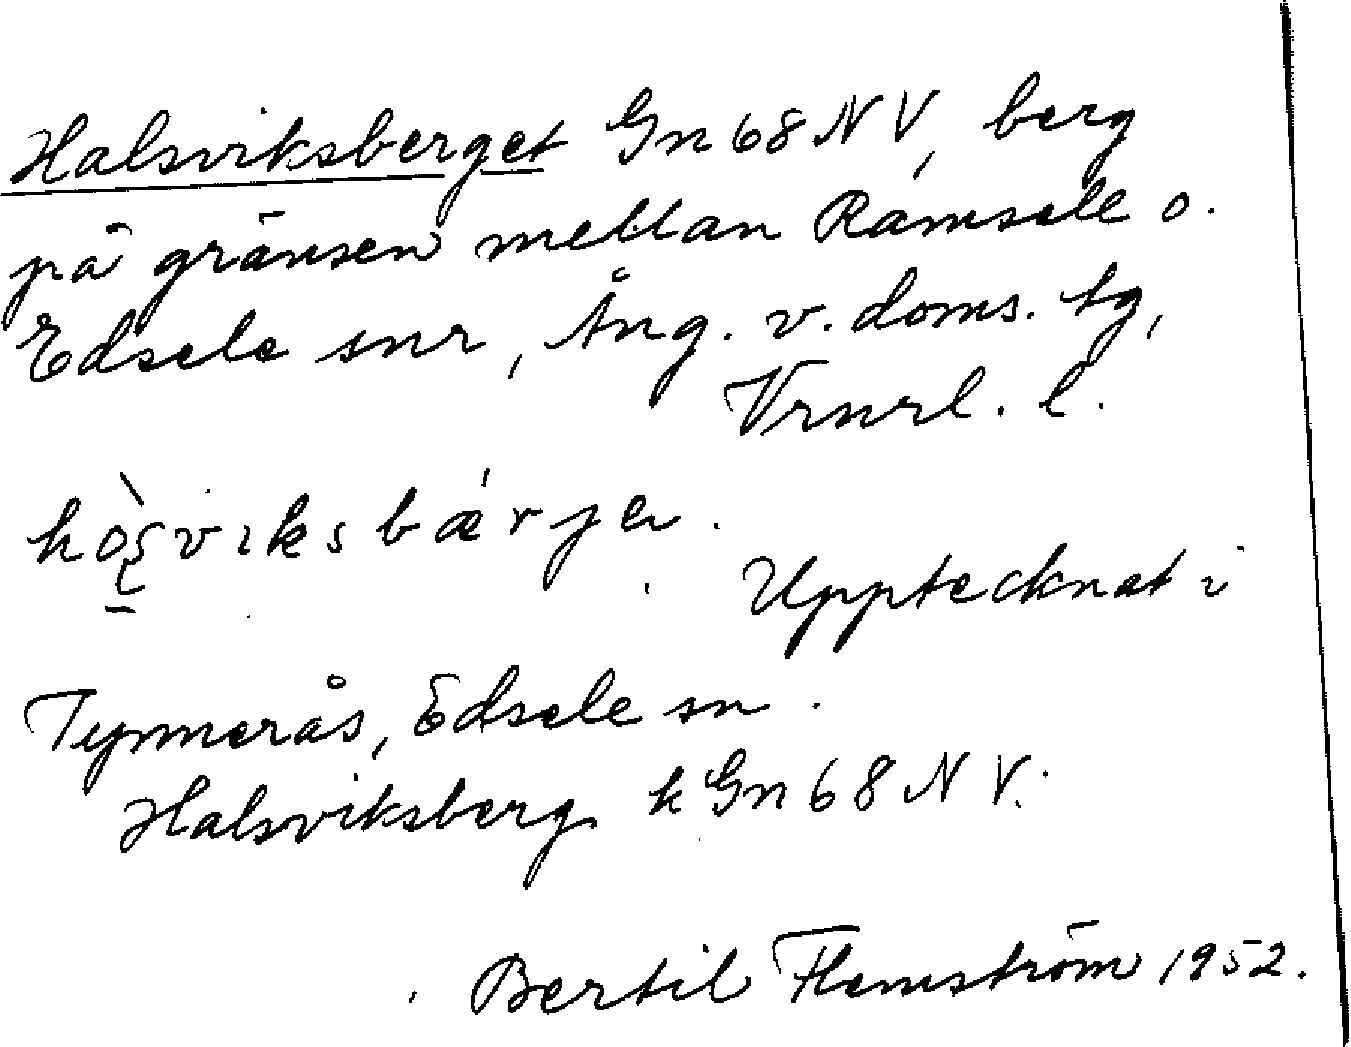 Halsviksberget Gn 68 NV, berg
på gränsen mellan Ramsele o.
Edsele snr, Ång. v. doms. tg,
Vrnrl. l.
hòʂvıksbǽrjɐ.
Upptecknat i
Tynnerås, Edsele sn.
Halsviksberg k Gn 68 NV.
Bertil Flemström 1952.